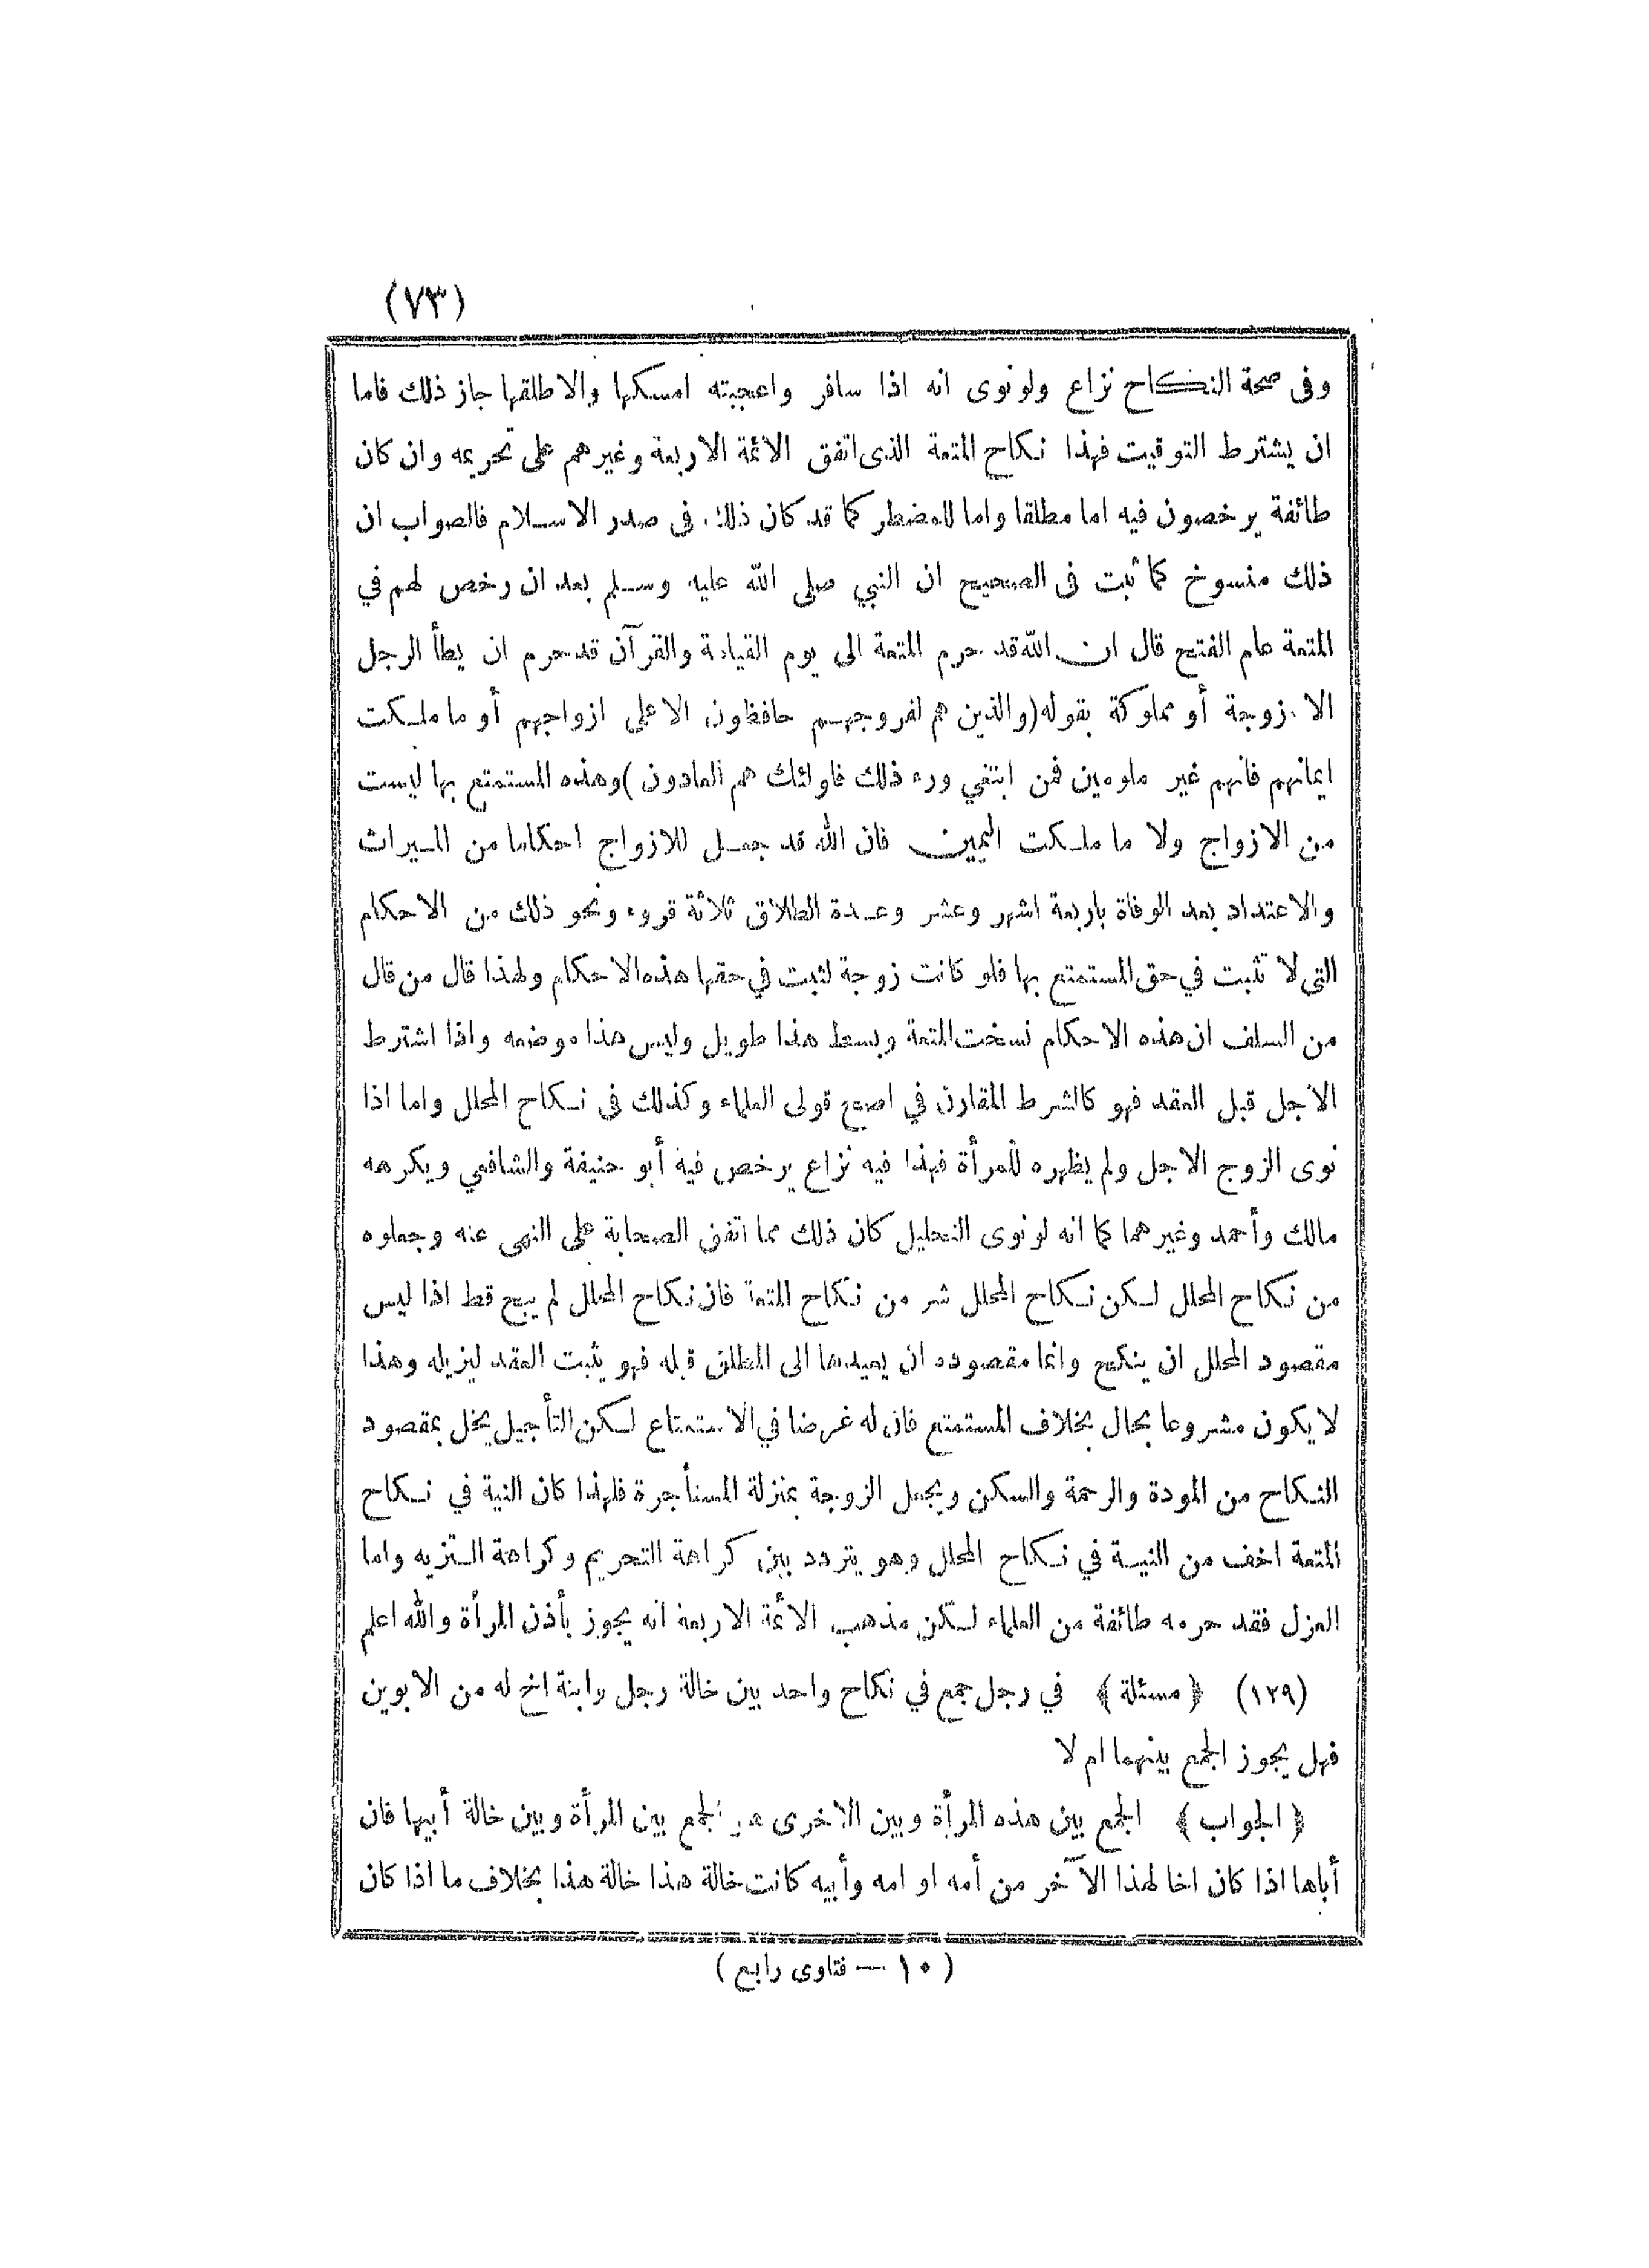 (٧٣)
وفى صحة النكاح نزاع ولو نوى انه اذا سافر واعجبته امسكها والا طلقها جاز ذلك فاما
ان يشترط التوقيت فهذا نكاح المتعة الذى اتفق الائمة الاربعة وغيرهم على تحريمه وان كان
طائفة يرخصون فيه اما مطلقا واما للمضطر كما قد كان ذلك فى صدر الاسلام فالصواب ان
ذلك منسوخ كما ثبت فى الصحيح ان النبي صلى الله عليه وسلم بعد ان رخص لهم في
المتعة عام الفتح قال ان الله قد حرم المتعة الى يوم القيامة والقرآن قد حرم ان يطأ الرجل
الا زوجة أو مملوكة بقوله (والذين هم لفروجهم حافظون الا على ازواجهم أو ما ملكت
ايمانهم فانهم غير ملومين فمن ابتغي ورء ذلك فاولئك هم العادون) وهذه المستمتع بها ليست
من الازواج ولا ما ملكت اليمين فان الله قد جعل للازواج احكاما من الميراث
والاعتداد بعد الوفاة باربعة اشهر وعشر وعدة الطلاق ثلاثة قروء ونحو ذلك من الاحكام
التى لا تثبت في حق المستمتع بها فلو كانت زوجة لثبت في حقها هذه الاحكام ولهذا قال من قال
من السلف ان هذه الاحكام نسخت المتعة وبسط هذا طويل وليس هذا موضعه واذا اشترط
الاجل قبل العقد فهو كالشرط المقارن في اصح قولى العلماء وكذلك فى نكاح المحلل واما اذا
نوى الزوج الاجل ولم يظهره للمرأة فهذا فيه نزاع يرخص فيه أبو حنيفة والشافعي ويكرهه
مالك وأحمد وغيرهما كما انه لو نوى التحليل كان ذلك مما اتفق الصحابة على النهى عنه وجعلوه
من نكاح المحلل لكن نكاح المحلل شر من نكاح المتعة فان نكاح المحلل لم يبح قط اذا ليس
مقصود المحلل ان ينكح وانما مقصوده ان يعيدها الى المطلق قبله فهو يثبت العقد ليزيله وهذا
لا يكون مشروعا بحال بخلاف المستمتع فان له غرضا في الاستمتاع لكن التأجيل يخل بمقصود
النكاح من المودة والرحمة والسكن ويجعل الزوجة بمنزلة المستأجرة فلهذا كان النية في نكاح
المتعة اخف من النية في نكاح المحلل وهو يتردد بين كراهة التحريم وكراهة التنزيه واما
العزل فقد حرمه طائفة من العلماء لكن مذهب الائمة الاربعة انه يجوز بأذن المرأة والله اعلم
(١٢٩) ﴿مسئلة﴾ في رجل جمع في نكاح واحد بين خالة رجل وابنة اخ له من الابوين
فهل يجوز الجمع بينهما ام لا
﴿الجواب﴾ الجمع بين هذه المرأة وبين الاخرى هو الجمع بين المرأة وبين خالة أبيها فان
أباها اذا كان اخا لهذا الآخر من أمه او امه وأبيه كانت خالة هذا خالة هذا بخلاف ما اذا كان
(١٠ — فتاوى رابع)